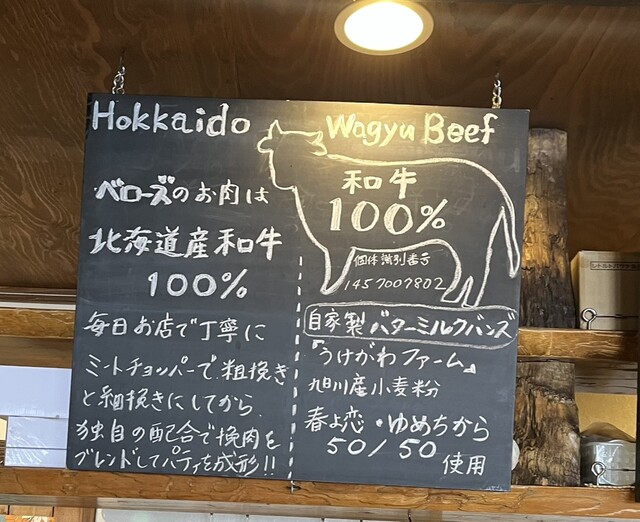 Hokkaido
ベローズのお肉は
北海道産和牛
100%
毎日お店で丁寧に
ミートチョッパーで粗挽き
と細挽きにしてから
独自の配合で挽肉を
ブレンドしてパティを成形!!
Wagyu Beef
和牛
100%
個体識別番号
1457007802
自家製バターミルクバンズ
『うけがわファーム』
旭川産小麦粉
春よ恋・ゆめちから
50/50
使用